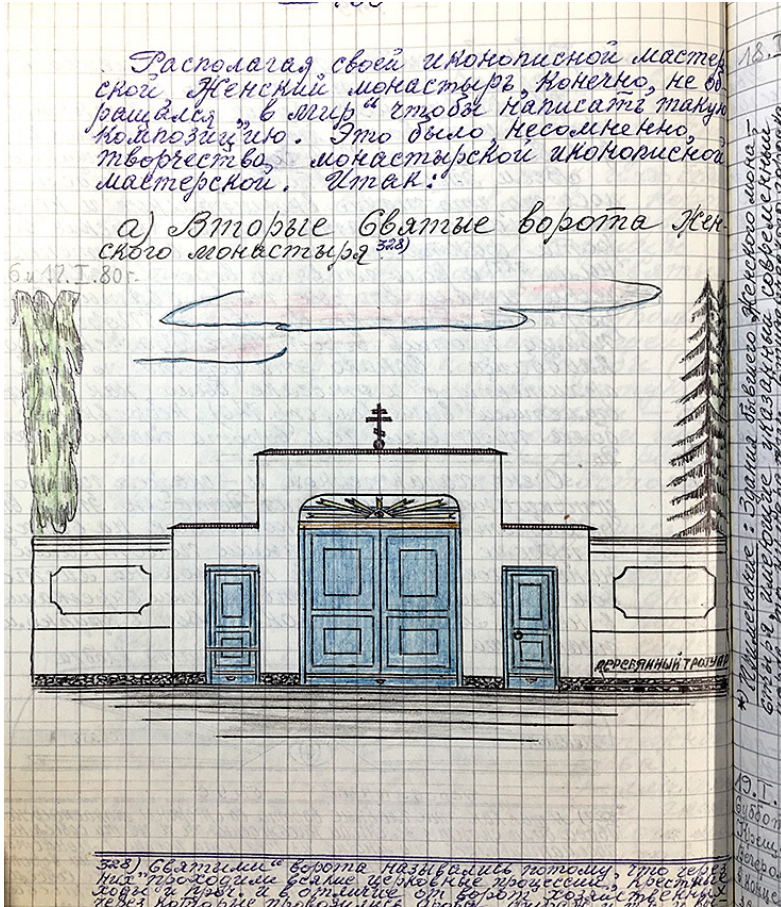 Располагая своей иконописной мастер-
ской Женский монастырь, конечно, не об-
ращался „в мир“ чтобы написать такую
композицию. Это было, несомненно,
творчество монастырской иконописной
мастерской. Итак:
а) Вторые Святые ворота Жен-
ского монастыря 328)
6 и 12.I.80 г.
ДЕРЕВЯННЫЙ ТРОТУАР
328) „Святыми“ ворота назывались потому, что через
них проходили всякие церковные процессии, крестные
ходы и проч. и в отличие от ворот хозяйственных
через которые провозились дрова,
18.I
*) Примечание: Здания бывшего Женского мона-
стыря, имеющие указанный современный
19.I.
Суббота
Вечеро
в конце